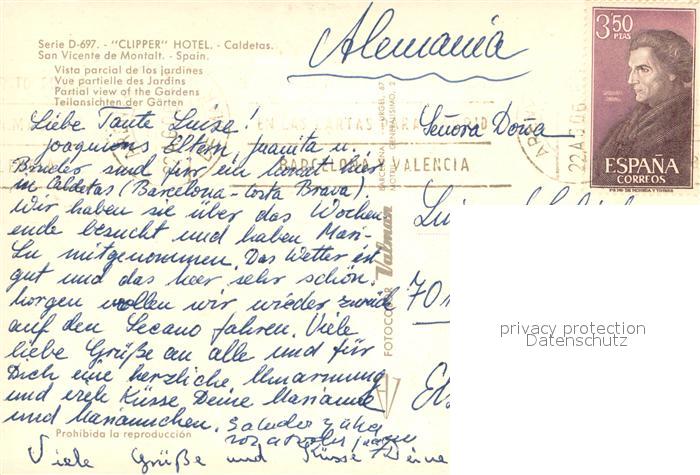 Serie D-697. - "CLIPPER" HOTEL. - Caldetas.
San Vicente de Montalt. - Spain.
Vista parcial de los jardines
Vue partielle des Jardins
Partial view of the Gardens
Teilansichten der Gärten
Alemania
3,50
PTAS
ESPAÑA
CORREOS
22 A
EN LAS CARTAS PARA MADRID
BARCELONA Y VALENCIA
Señora Doña
Liebe Tante Luise!
Joaquins Eltern, Juanita u.
Bruder sind für ein Monat hier
in Caldetas (Barcelona-Costa Brava).
Wir haben sie über das Wochen
ende besucht und haben Mari-
Lu mitgenommen. Das Wetter ist
gut und das Meer sehr schön.
Morgen wollen wir wieder zurück
auf den Secano fahren. Viele
liebe Grüße an alle und für
Dich eine herzliche Umarmung
und viele Küsse Deine Marianne
und Mariannchen.
Saludos
Viele Grüße und Küsse Deine
Prohibida la reproducción
FOTOCOLOR Valman
70
privacy protection
Datenschutz